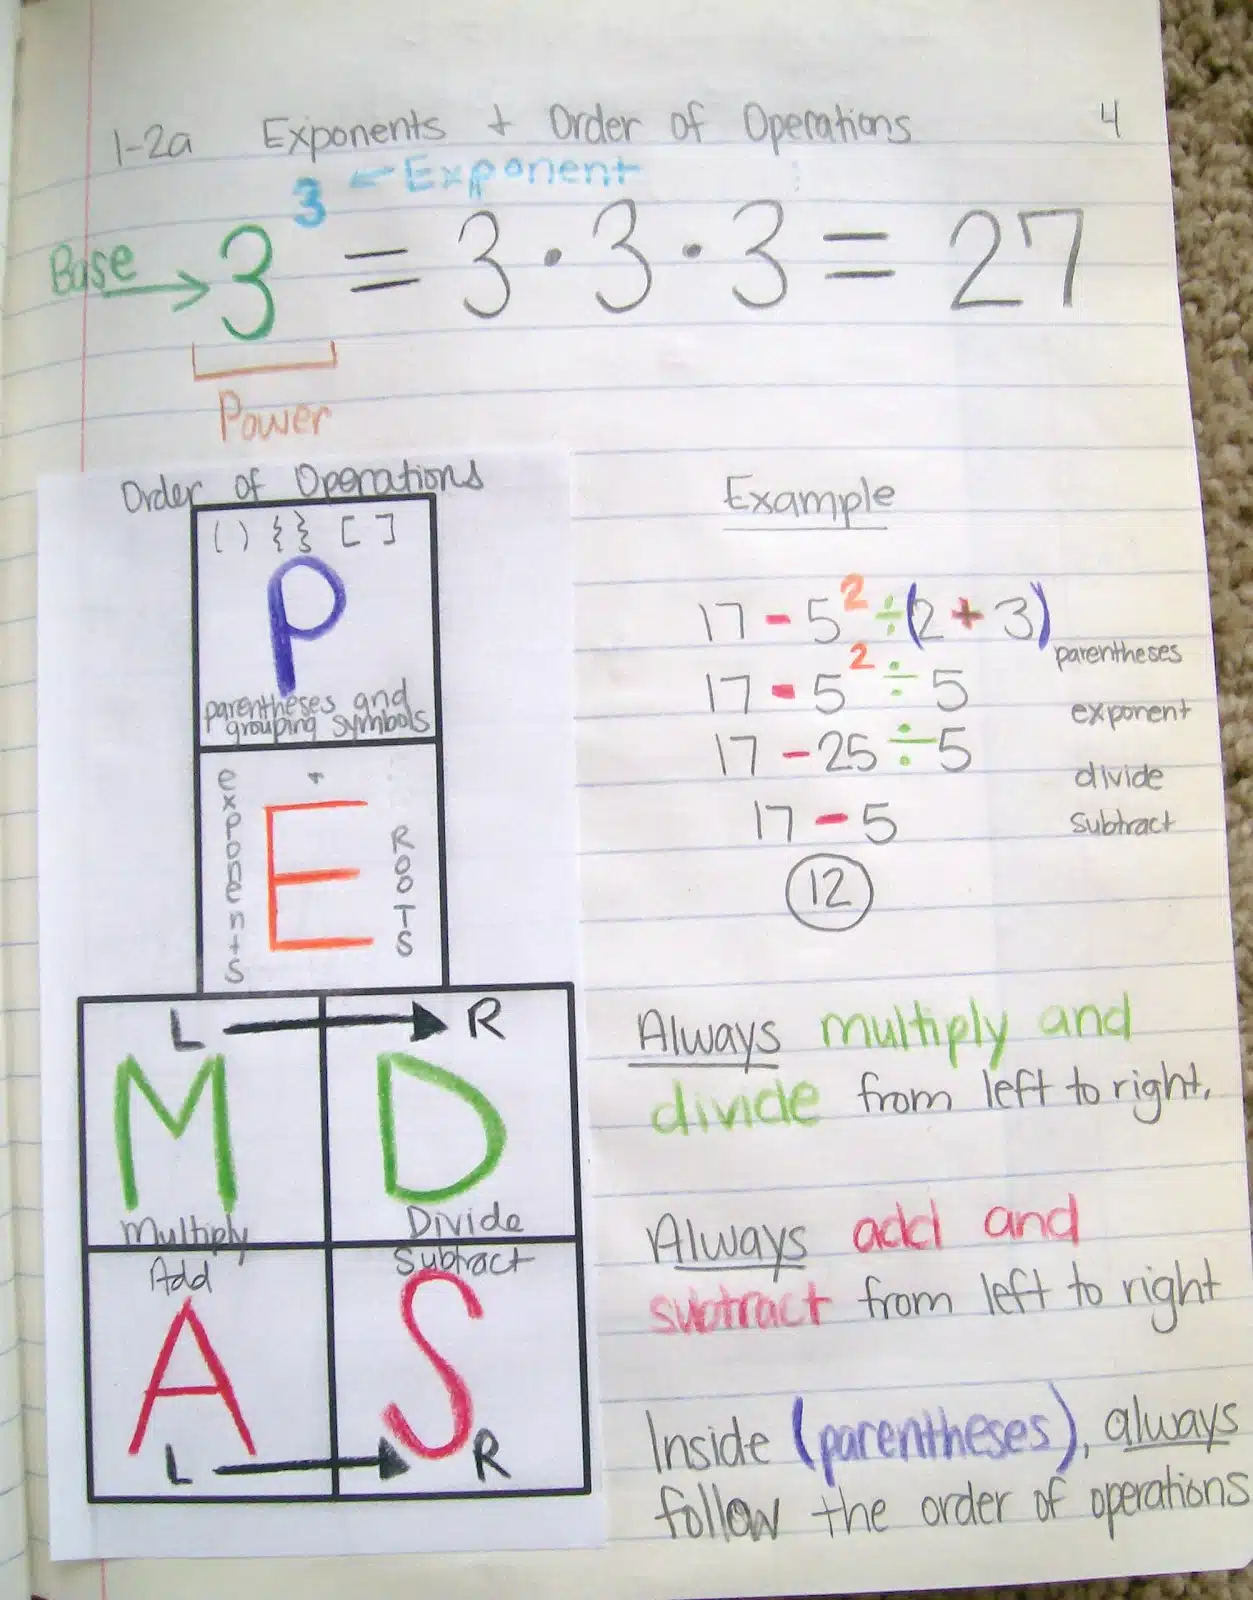 1-2a Exponents + Order of Operations 4
3 ← Exponent
Base → 3³ = 3 · 3 · 3 = 27
Power
Order of Operations
( ) { } [ ]
P
parentheses and
grouping symbols
exponents + Roots
E
L → R
M D
Multiply Divide
Add Subtract
A S
L → R
Example
17 - 5² ÷ (2 + 3) parentheses
17 - 5² ÷ 5 exponent
17 - 25 ÷ 5 divide
17 - 5 subtract
12
Always multiply and
divide from left to right.
Always add and
subtract from left to right
Inside (parentheses), always
follow the order of operations